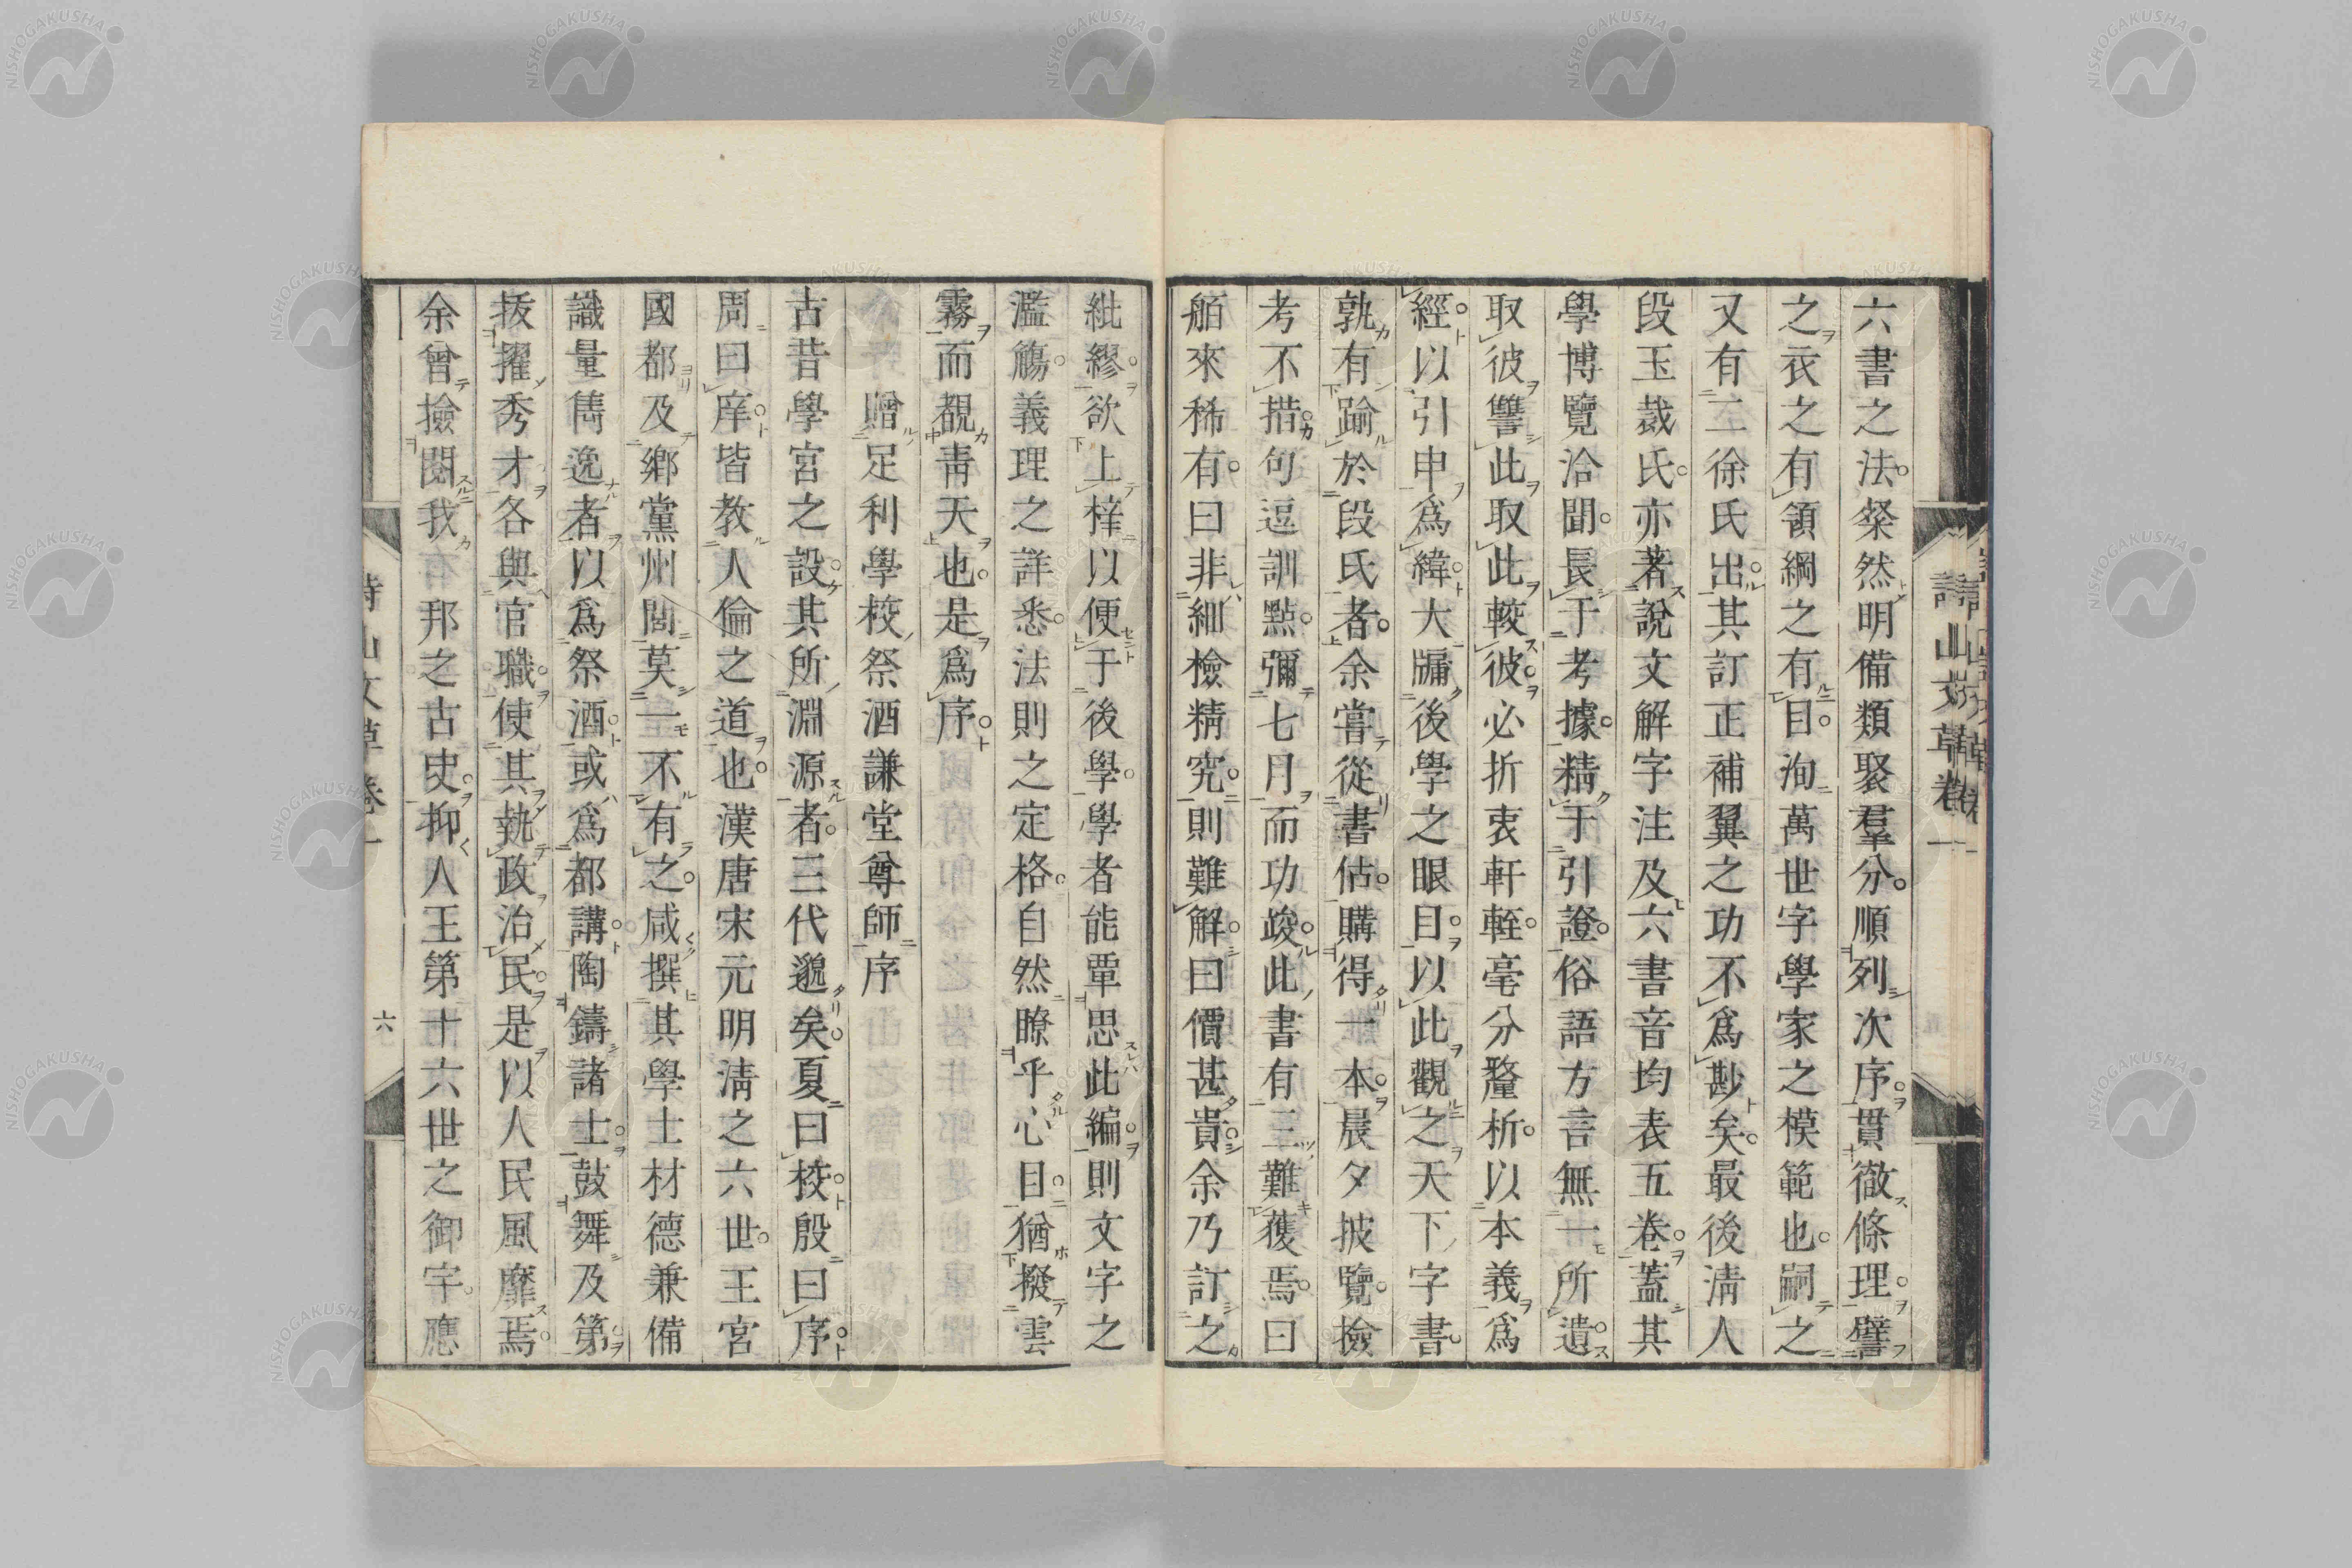 詩山文草卷一
六書之法燦然明備類聚羣分順列次序貫徹條理譬
之衣之有領綱之有目洵萬世字學家之模範也嗣之
又有二徐氏出其訂正補翼之功不爲尠矣最後清人
段玉裁氏亦著說文解字注及六書音均表五卷蓋其
學博覽洽聞長于考據精于引證俗語方言無一所遺
取彼讐此取此較彼必折衷軒輊毫分釐析以本義爲
經以引申爲緯大牖後學之眼目以此觀之天下字書
孰有踰於段氏者余嘗從書估購得一本晨夕披覽撿
考不措句逗訓點彌七月而功竣此書有三難獲焉曰
舶來稀有曰非細檢精究則難解曰價甚貴余乃訂之
紕繆欲上梓以便于後學學者能覃思此編則文字之
濫觴義理之詳悉法則之定格自然瞭乎心目猶撥雲
霧而覩靑天也是爲序
贈足利學校祭酒謙堂尊師序
古昔學宮之設其所淵源者三代邈矣夏曰校殷曰序
周曰庠皆敎人倫之道也漢唐宋元明淸之六世王宮
國都及鄉黨州閭莫一不有之咸撰其學士材德兼備
識量雋逸者以爲祭酒或爲都講陶鑄諸士鼓舞及第
拔擢秀才各與官職使其執政治民是以人民風靡焉
余曾撿閱我右邦之古史抑人王第十六世之御宇應
詩山文草卷一
六
NISHOGAKUSHA